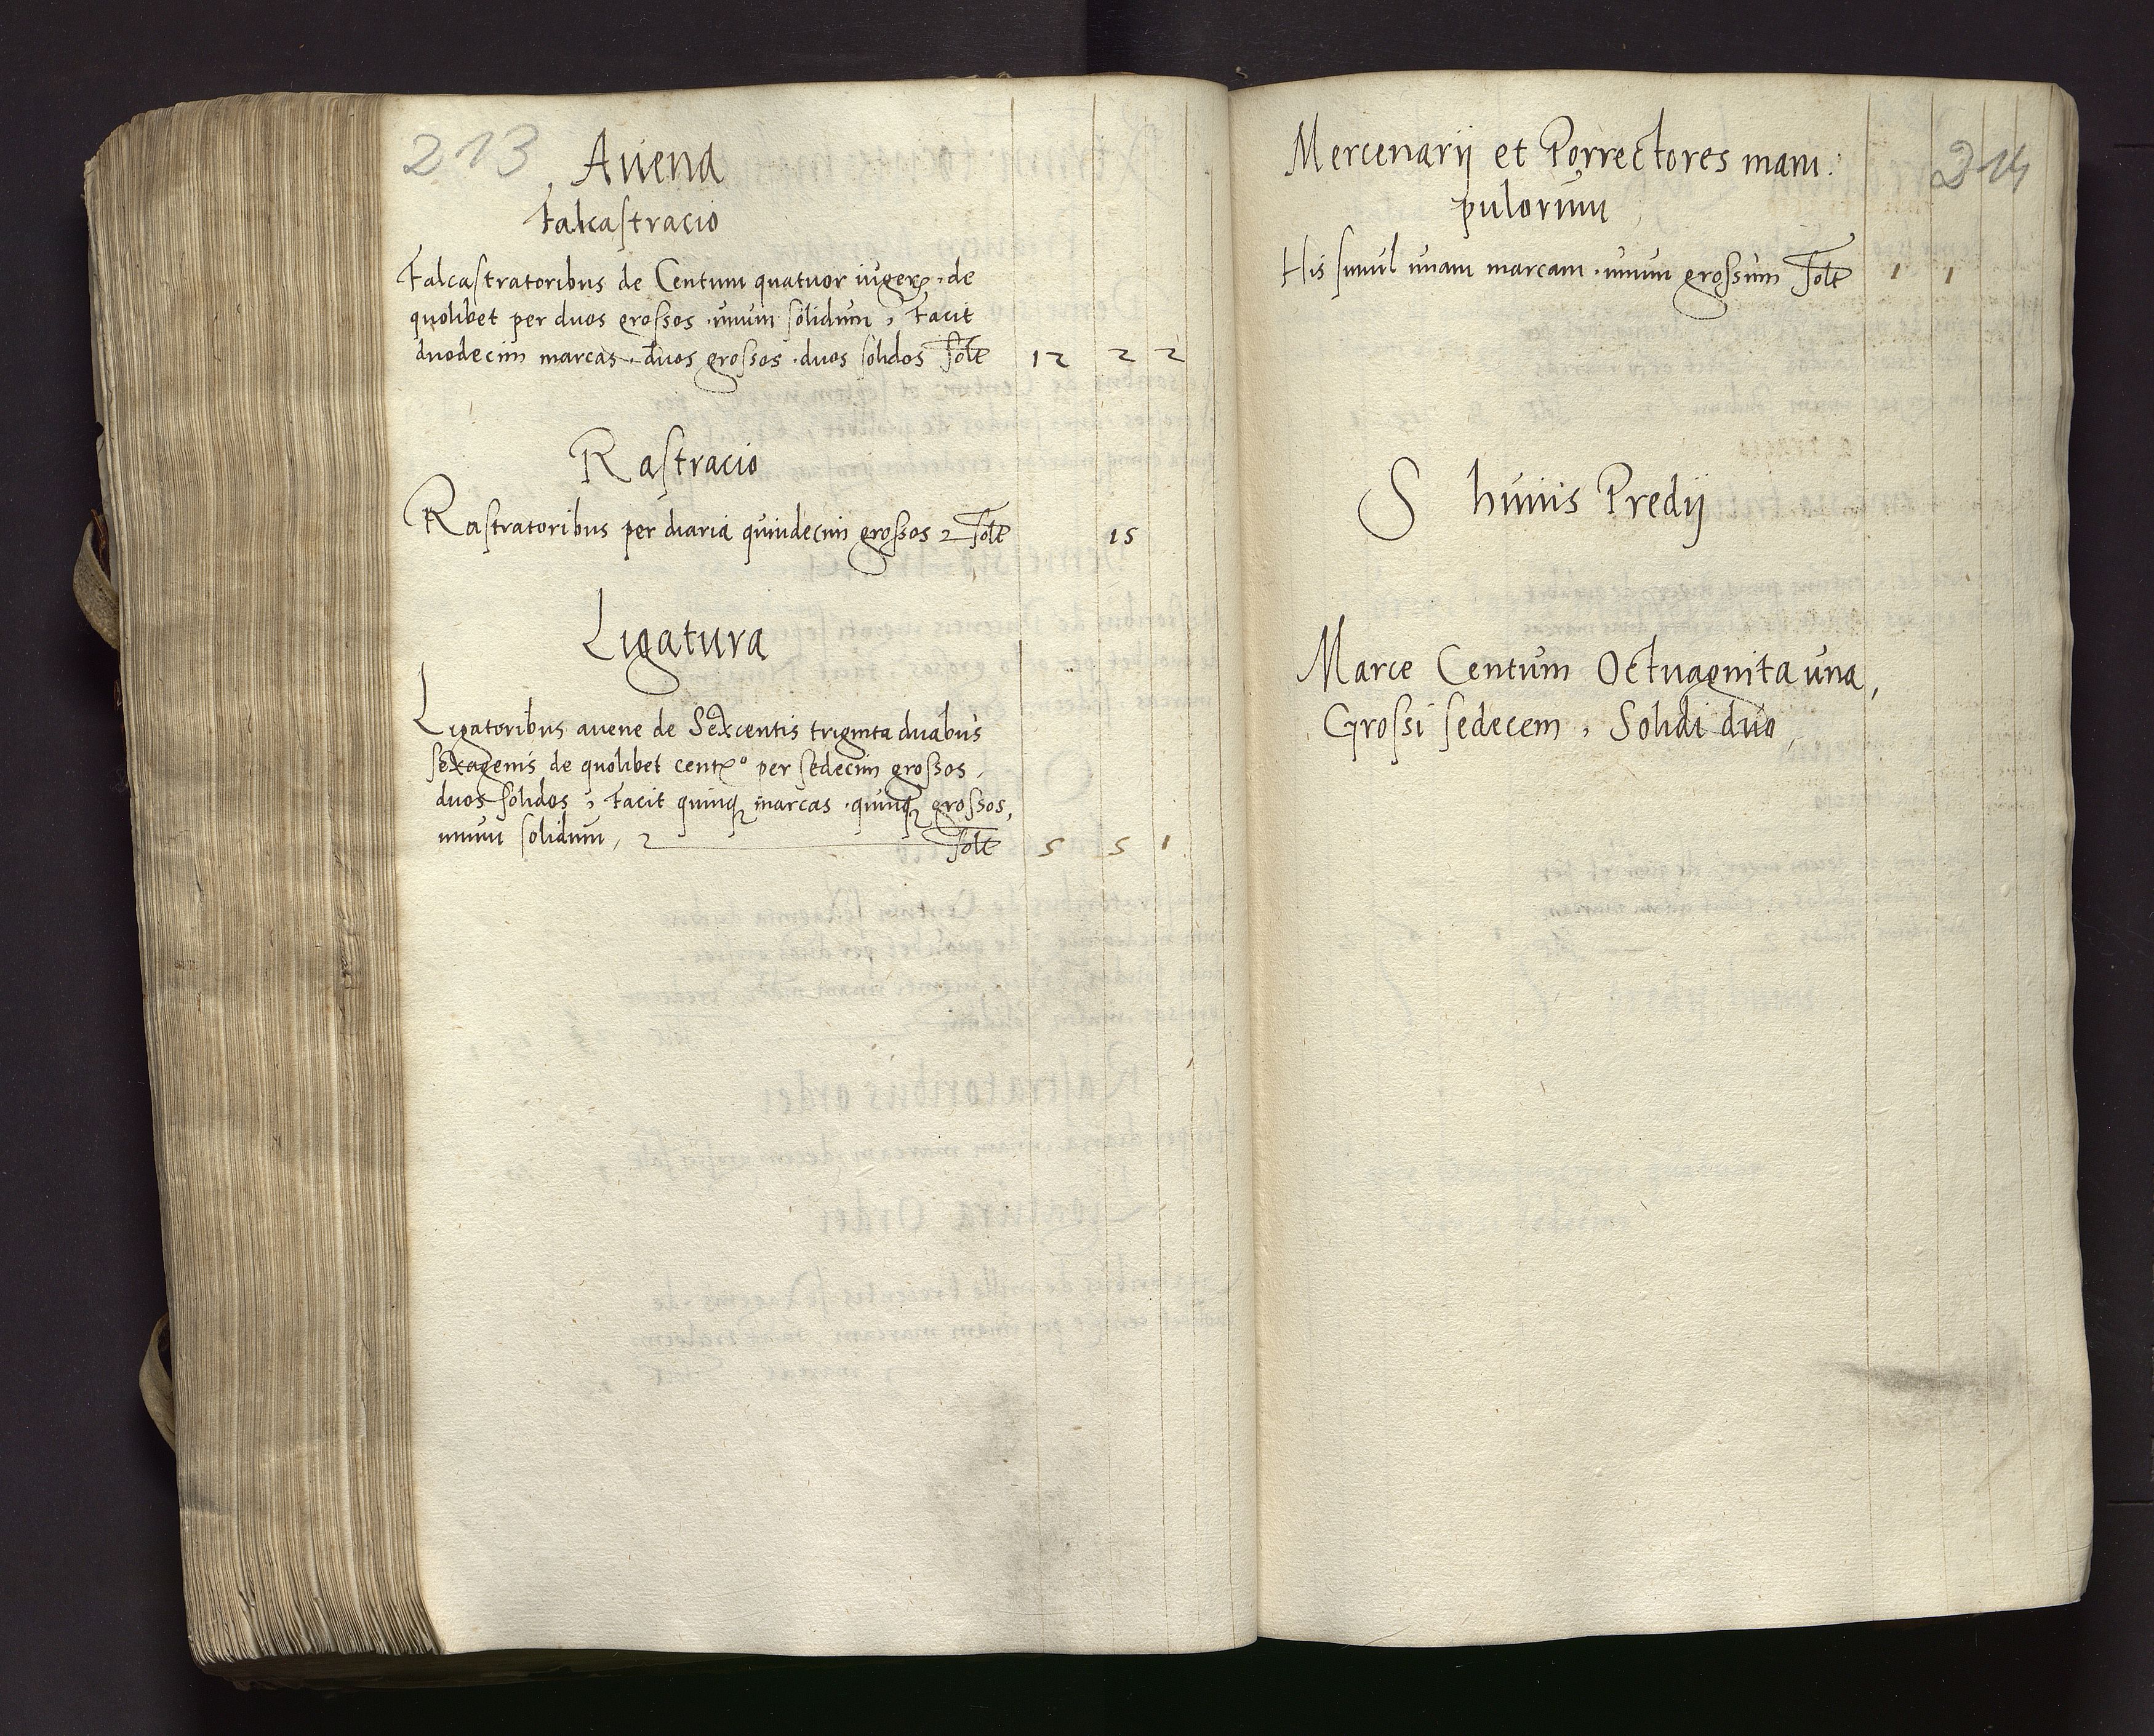 213
Auena
Falcastracio
Falcastratoribus de Centum quatuor iuger de
quolibet per duos grossos unum solidum, Facit
duodecim marcas duos grossos duos solidos solt 12 2 2
Rastracio
Rastratoribus per diaria quindecim grossos solt 15
Ligatura
Ligatoribus auene de Sexcentis triginta duabus
sexagenis de quolibet cent° per sedecim grossos
duos solidos, Facit quinq marcas quinq grossos,
unum solidum, solt 5 5 1
214
Mercenarij et Porrectores mani:
pulorum
His simul unam marcam unum grossum solt 1 1
S huius Predij
Marce Centum Octuagnita una,
Grossi sedecem, Solidi duo,